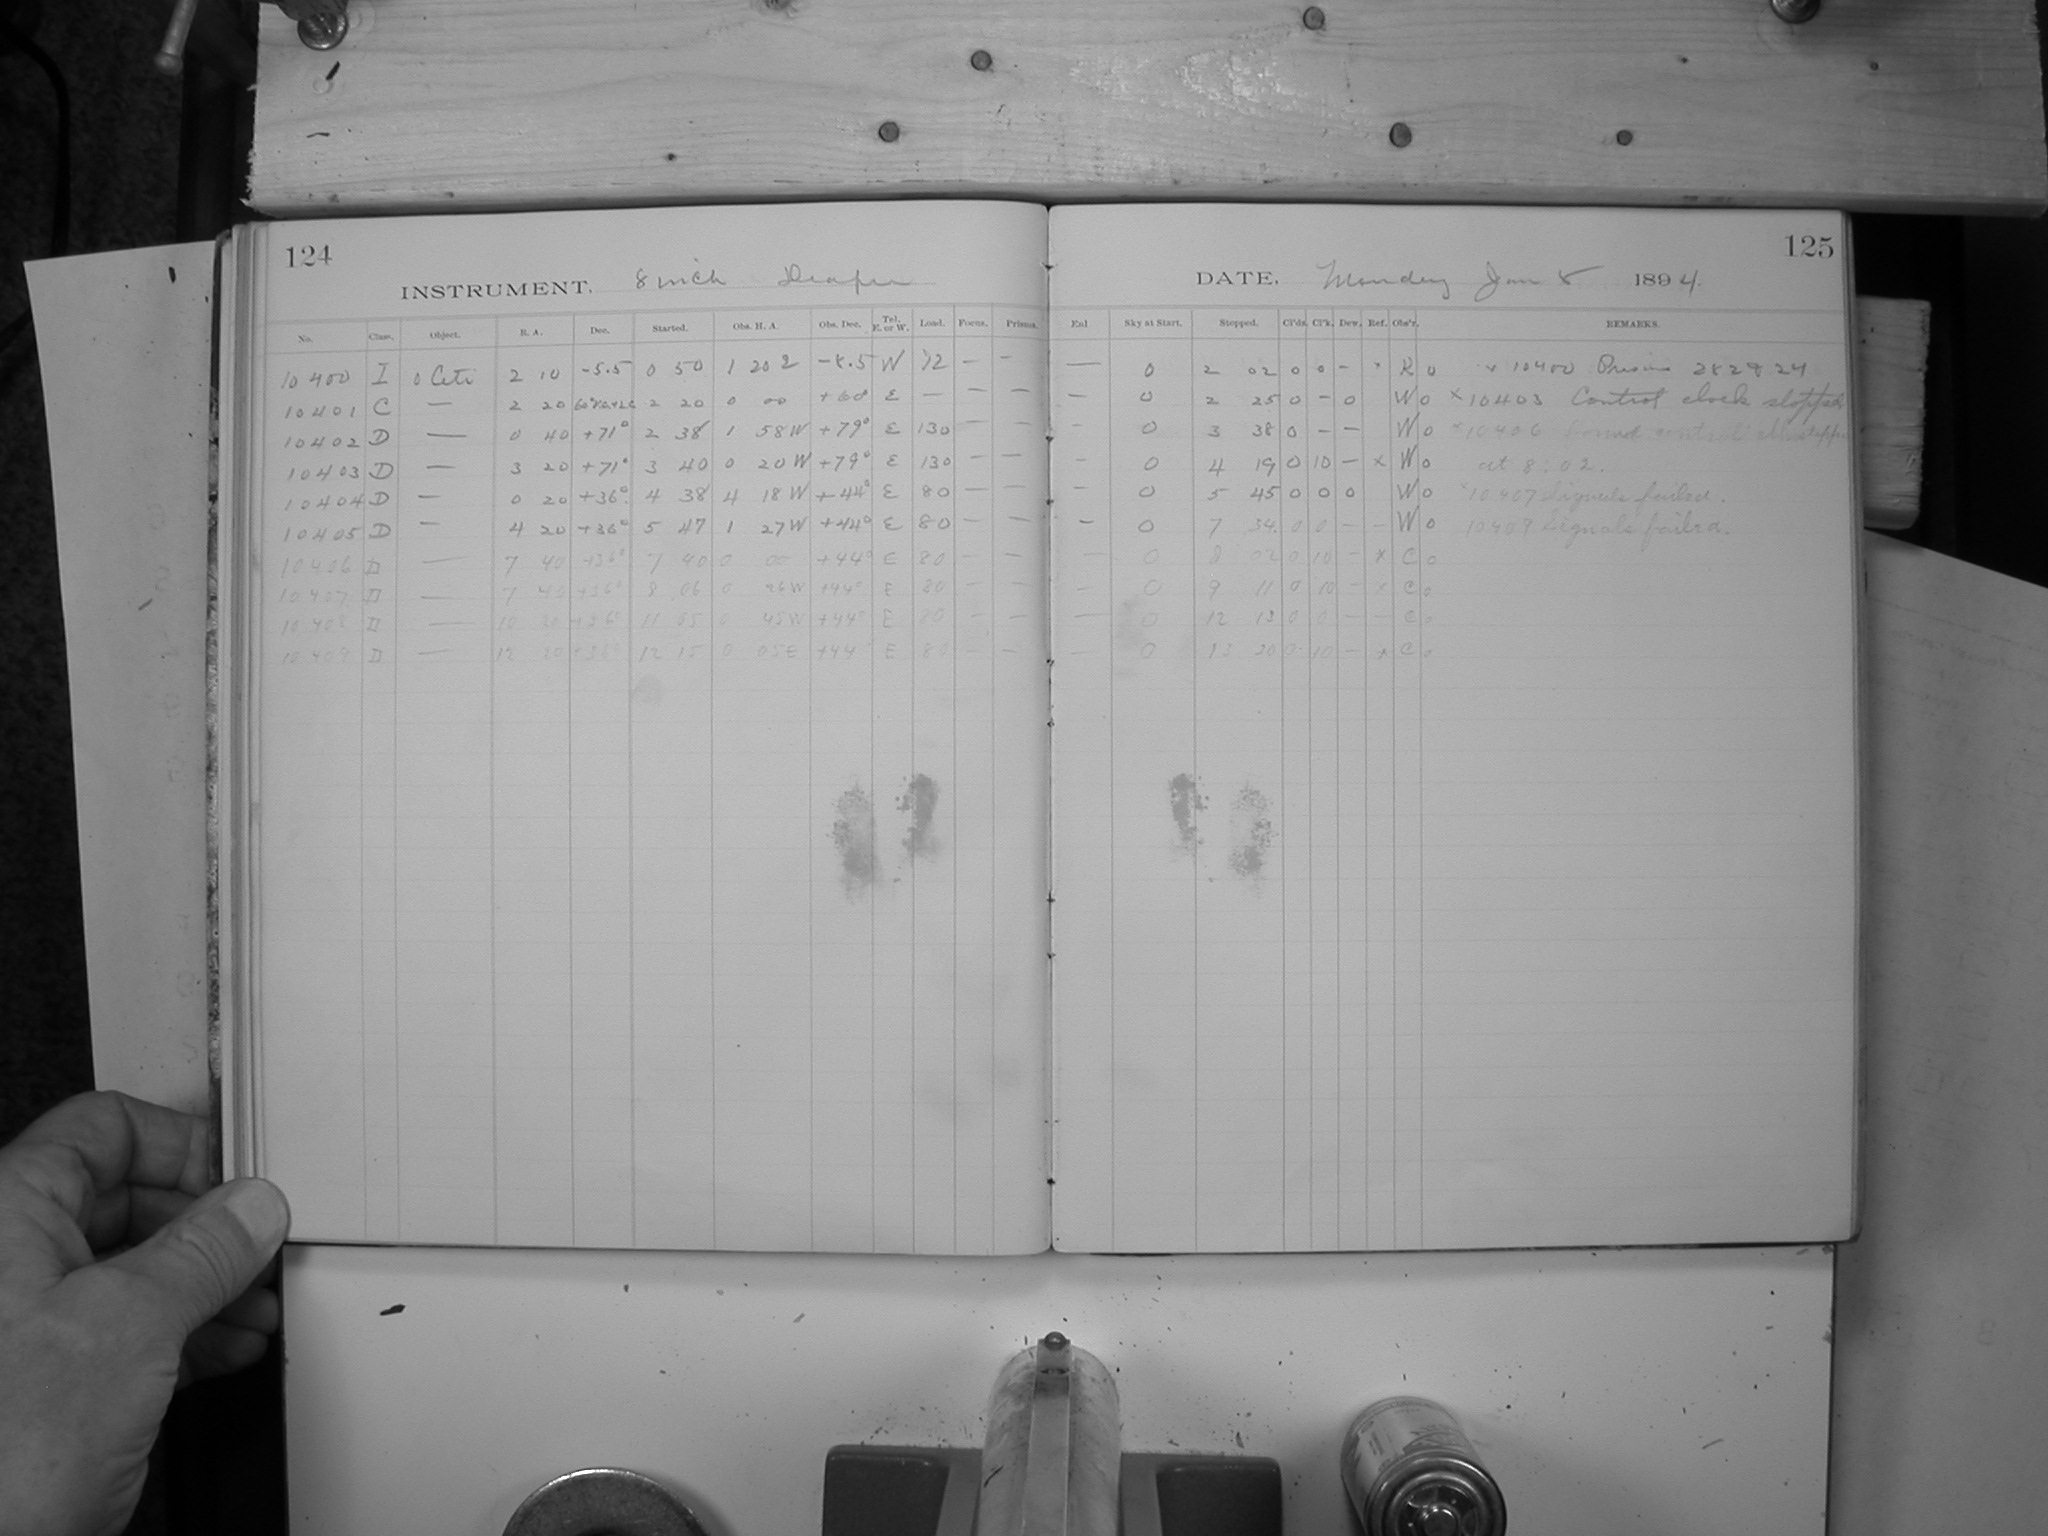 124
INSTRUMENT. 8 inch Draper
No. Class. Object. R. A. Dec. Started. Obs. H. A. Obs. Dec. Tel. E. or W. Load. Focus. Prisms.
10400 I o Ceti 2 10 -5.5 0 50 1 20 2 -8.5 W 12 — —
10401 C — 2 20 2 20 0 00 +60° E — — —
10402 D — 0 40 +71° 2 38 1 58W +79° E 130 — —
10403 D — 3 20 +71° 3 40 0 20W +79° E 130 — —
10404 D — 0 20 +36° 4 38 4 18W +44° E 80 — —
10405 D — 4 20 +36° 5 47 1 27W +44° E 80 — —
10406 D — 7 40 +36° 7 40 0 00 +44° E 80 — —
10407 D — 7 40 +36° 8 06 0 26W +44° E 80 — —
10408 D — 10 20 +36° 11 05 0 45W +44° E 80 — —
10409 D — 12 20 +36° 12 15 0 05E +44° E 80 — —
125
DATE, Monday Jan 8 1894.
Enl Sky at Start. Stopped. Cl'ds. Cl'k. Dew. Ref. Obs'r. REMARKS.
— 0 2 02 0 0 — x K o x 10400 Prisms 28 29 24
— 0 2 25 0 — 0 W o x 10403 Control clock stopped
— 0 3 38 0 — — W o x 10406 Found control stopped
— 0 4 19 0 10 — x W o at 8:02.
— 0 5 45 0 0 0 W o x 10407 Signals failed.
— 0 7 34 0 0 — — W o 10409 Signals failed.
— 0 8 02 0 10 — x C o
— 0 9 11 0 10 — x C o
— 0 12 13 0 0 — — C o
— 0 13 20 0 10 — x C o